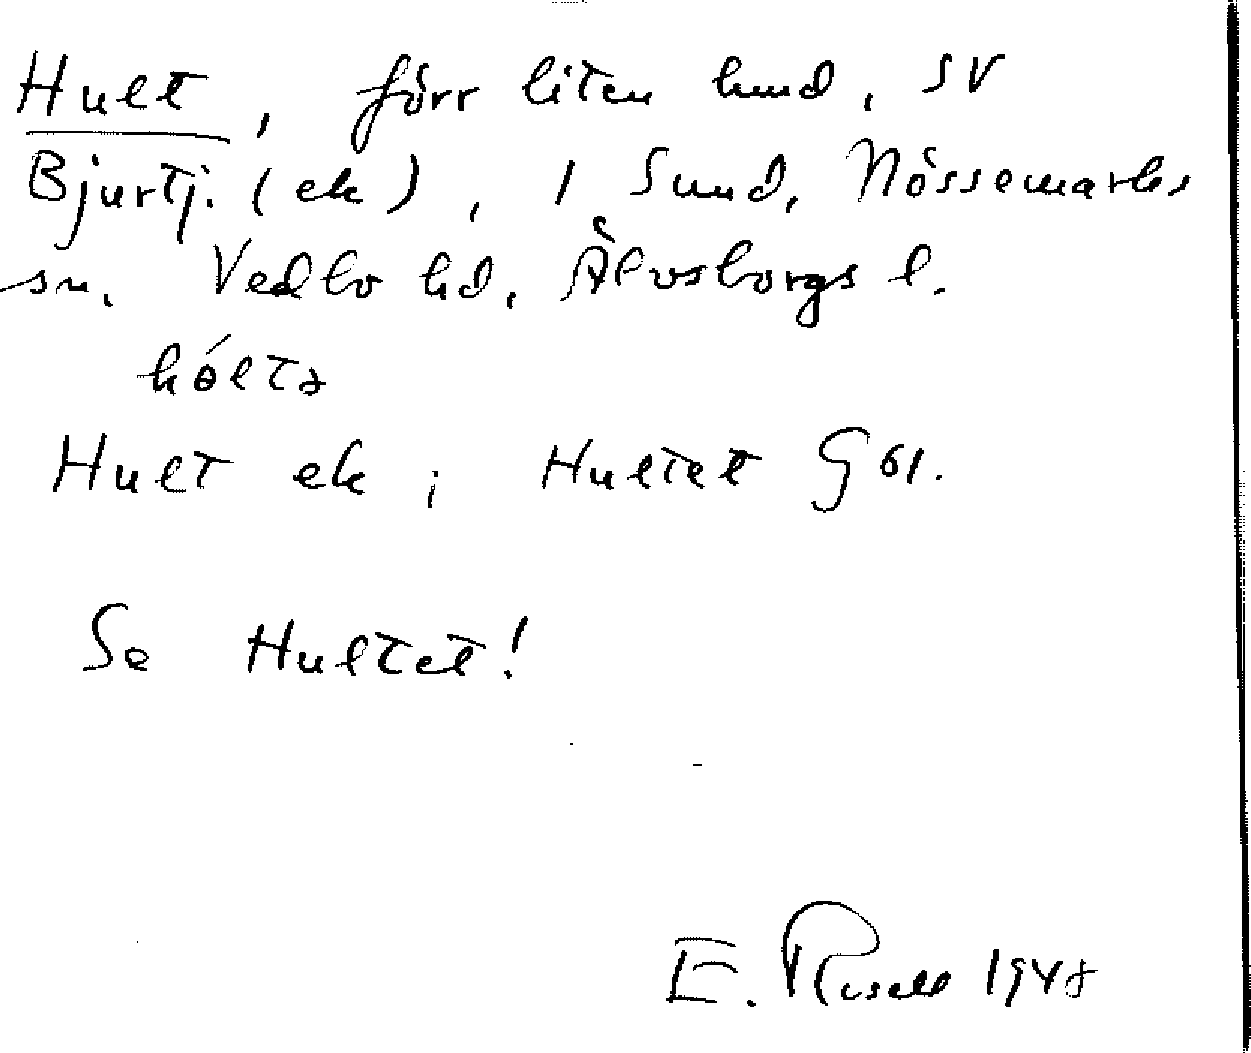 Hult, förr liten lund, SV
Bjurtj. (ek), 1 Sund, Nössemarks
sn. Vedbo hd, Älvsborgs l.
hó̵ltə
Hult ek ; Hultet G 61.
Se Hultet!
E. Rosell 1948